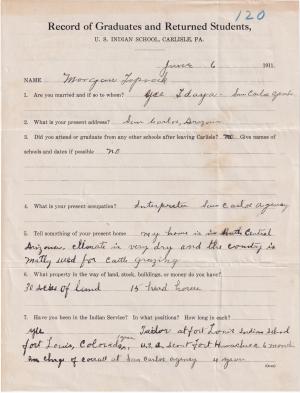 120
Record of Graduates and Returned Students,
U. S. INDIAN SCHOOL, CARLISLE, PA.
June 6 1911.
NAME Morgan Toprock
1. Are you married and if so to whom? yes Idaya - San Carlos Agency
2. What is your present address? San Carlos, Arizona
3. Did you attend or graduate from any other schools after leaving Carlisle? no Give names
of schools and dates if possible no
4. What is your present occupation? Interpreter San Carlos Agency
5. Tell something of your present home my home is in South Central
Arizona. climate is very dry and the country is
mostly used for cattle grazing
6. What property in the way of land, stock, buildings, or money do you have?
30 acres of land 15 head horse
7. Have you been in the Indian Service? In what positions? How long in each?
yes Tailor at fort Louis Indian School
fort Louis, Colorado, 1 year U.S. scout fort Huachuca 6 month
in charge of corral at San Carlos agency 4 year
(over)